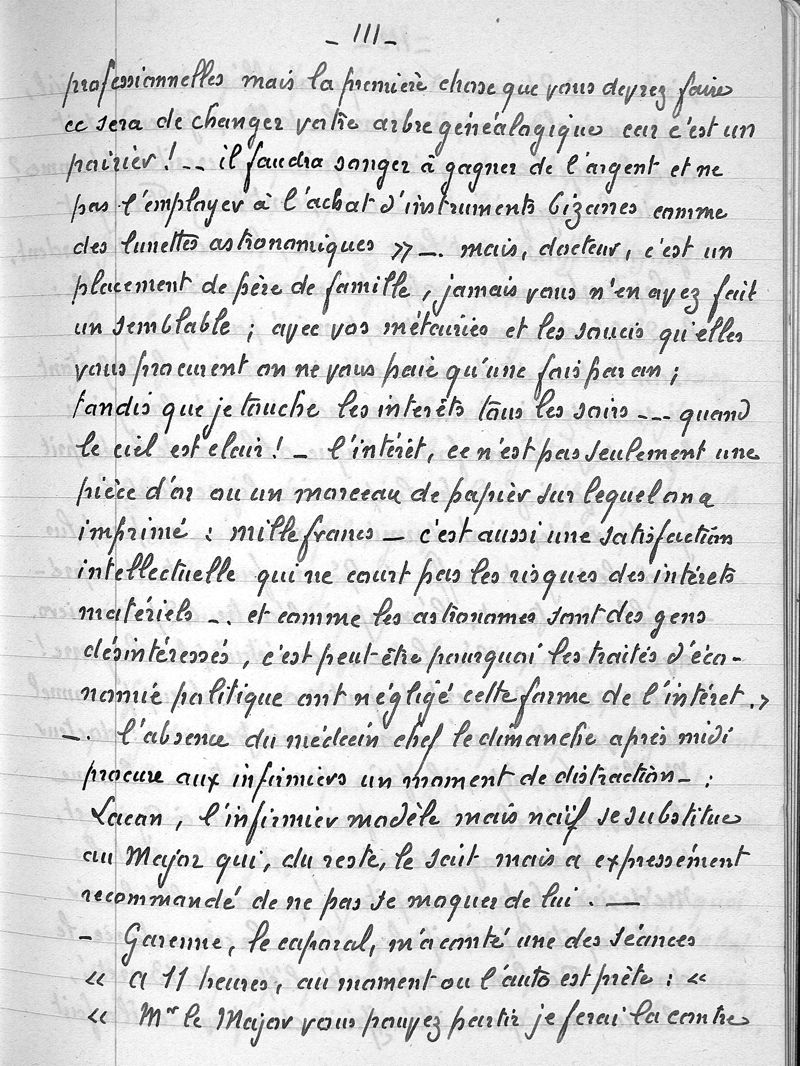 - 111 -
professionnelles mais la première chose que vous devrez faire
ce sera de changer votre arbre généalogique car c'est un
poirier ! -- il faudra songer à gagner de l'argent et ne
pas l'employer à l'achat d'instruments bizarres comme
des lunettes astronomiques » -. mais, docteur, c'est un
placement de père de famille, jamais vous n'en avez fait
un semblable ; avec vos métairies et les soucis qu'elles
vous procurent on ne vous paie qu'une fois par an ;
tandis que je touche les interêts tous les soirs --- quand
le ciel est clair ! - l'intérêt, ce n'est pas seulement une
pièce d'or ou un morceau de papier sur lequel on a
imprimé : mille francs - c'est aussi une satisfaction
intellectuelle qui ne court pas les risques des intérets
matériels -. et comme les astronomes sont des gens
désintéressés, c'est peut-être pourquoi les traités d'éco-
nomie politique ont négligé cette forme de l'intéret. >
-. l'absence du médecin chef le dimanche après midi
procure aux infirmiers un moment de distraction - :
Lacan, l'infirmier modèle mais naïf se substitue
au Major qui, du reste, le sait mais a expressément
recommandé de ne pas se moquer de lui. -
- Garenne, le caporal, m'a conté une des séances
« A 11 heures, au moment ou l'auto est prète : «
« Mr le Major vous pouvez partir je ferai la contre